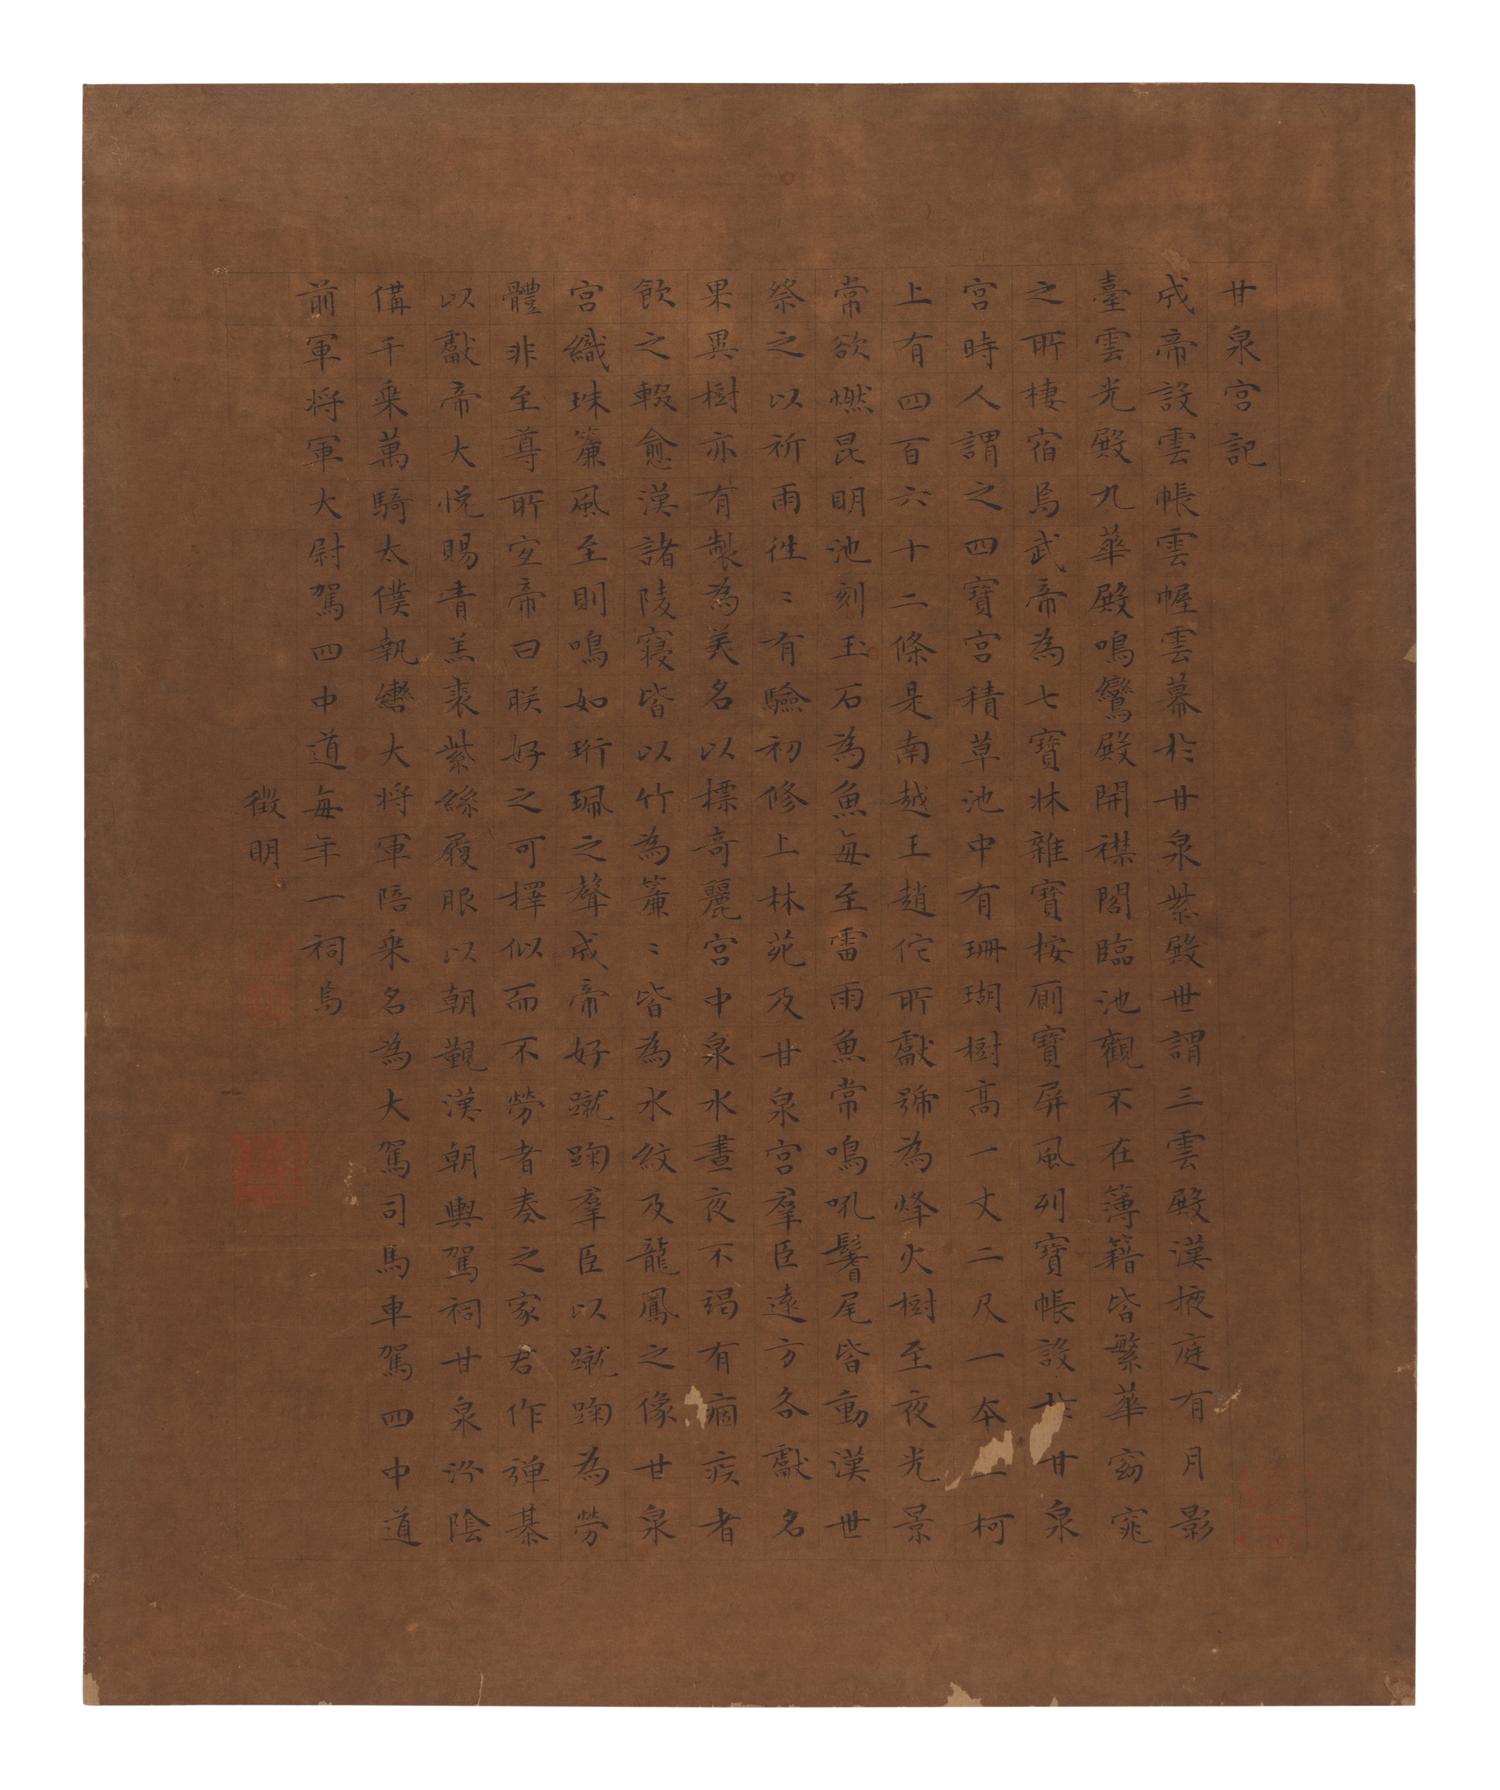 甘泉宮記
成帝設雲帳雲幄雲幕於甘泉紫殿世謂三雲殿漢掖庭有月影
臺雲光殿九華殿鳴鸞殿開襟閣臨池觀不在簿籍皆繁華窈窕
之所棲宿焉武帝為七寶牀雜寶桉廁寶屏風列寶帳設於甘泉
宮時人謂之四寶宮積草池中有珊瑚樹高一丈二尺一本三柯
上有四百六十二條是南越王趙佗所獻號為烽火樹至夜光景
常欲燃昆明池刻玉石為魚每至雷雨魚常鳴吼鬐尾皆動漢世
祭之以祈雨徃〻有驗初修上林苑及甘泉宮羣臣遠方各獻名
果異樹亦有製為美名以標奇麗宮中泉水晝夜不竭有痼疾者
飲之輟愈漢諸陵寢皆以竹為簾〻皆為水紋及龍鳳之像甘泉
宮織珠簾風至則鳴如珩珮之聲成帝好蹴踘羣臣以蹴踘為勞
體非至尊所宜帝曰朕好之可擇似而不勞者奏之家君作彈棊
以獻帝大悅賜青羔裘紫絲履服以朝覲漢朝輿駕祠甘泉汾陰
備千乘萬騎太僕執轡大將軍陪乘名為大駕司馬車駕四中道
前軍將軍大尉駕四中道每年一祠焉
徵明